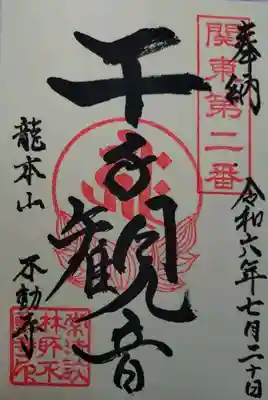 奉納
関東第二番
令和六年七月二十日
千手観音
龍本山
不動寺